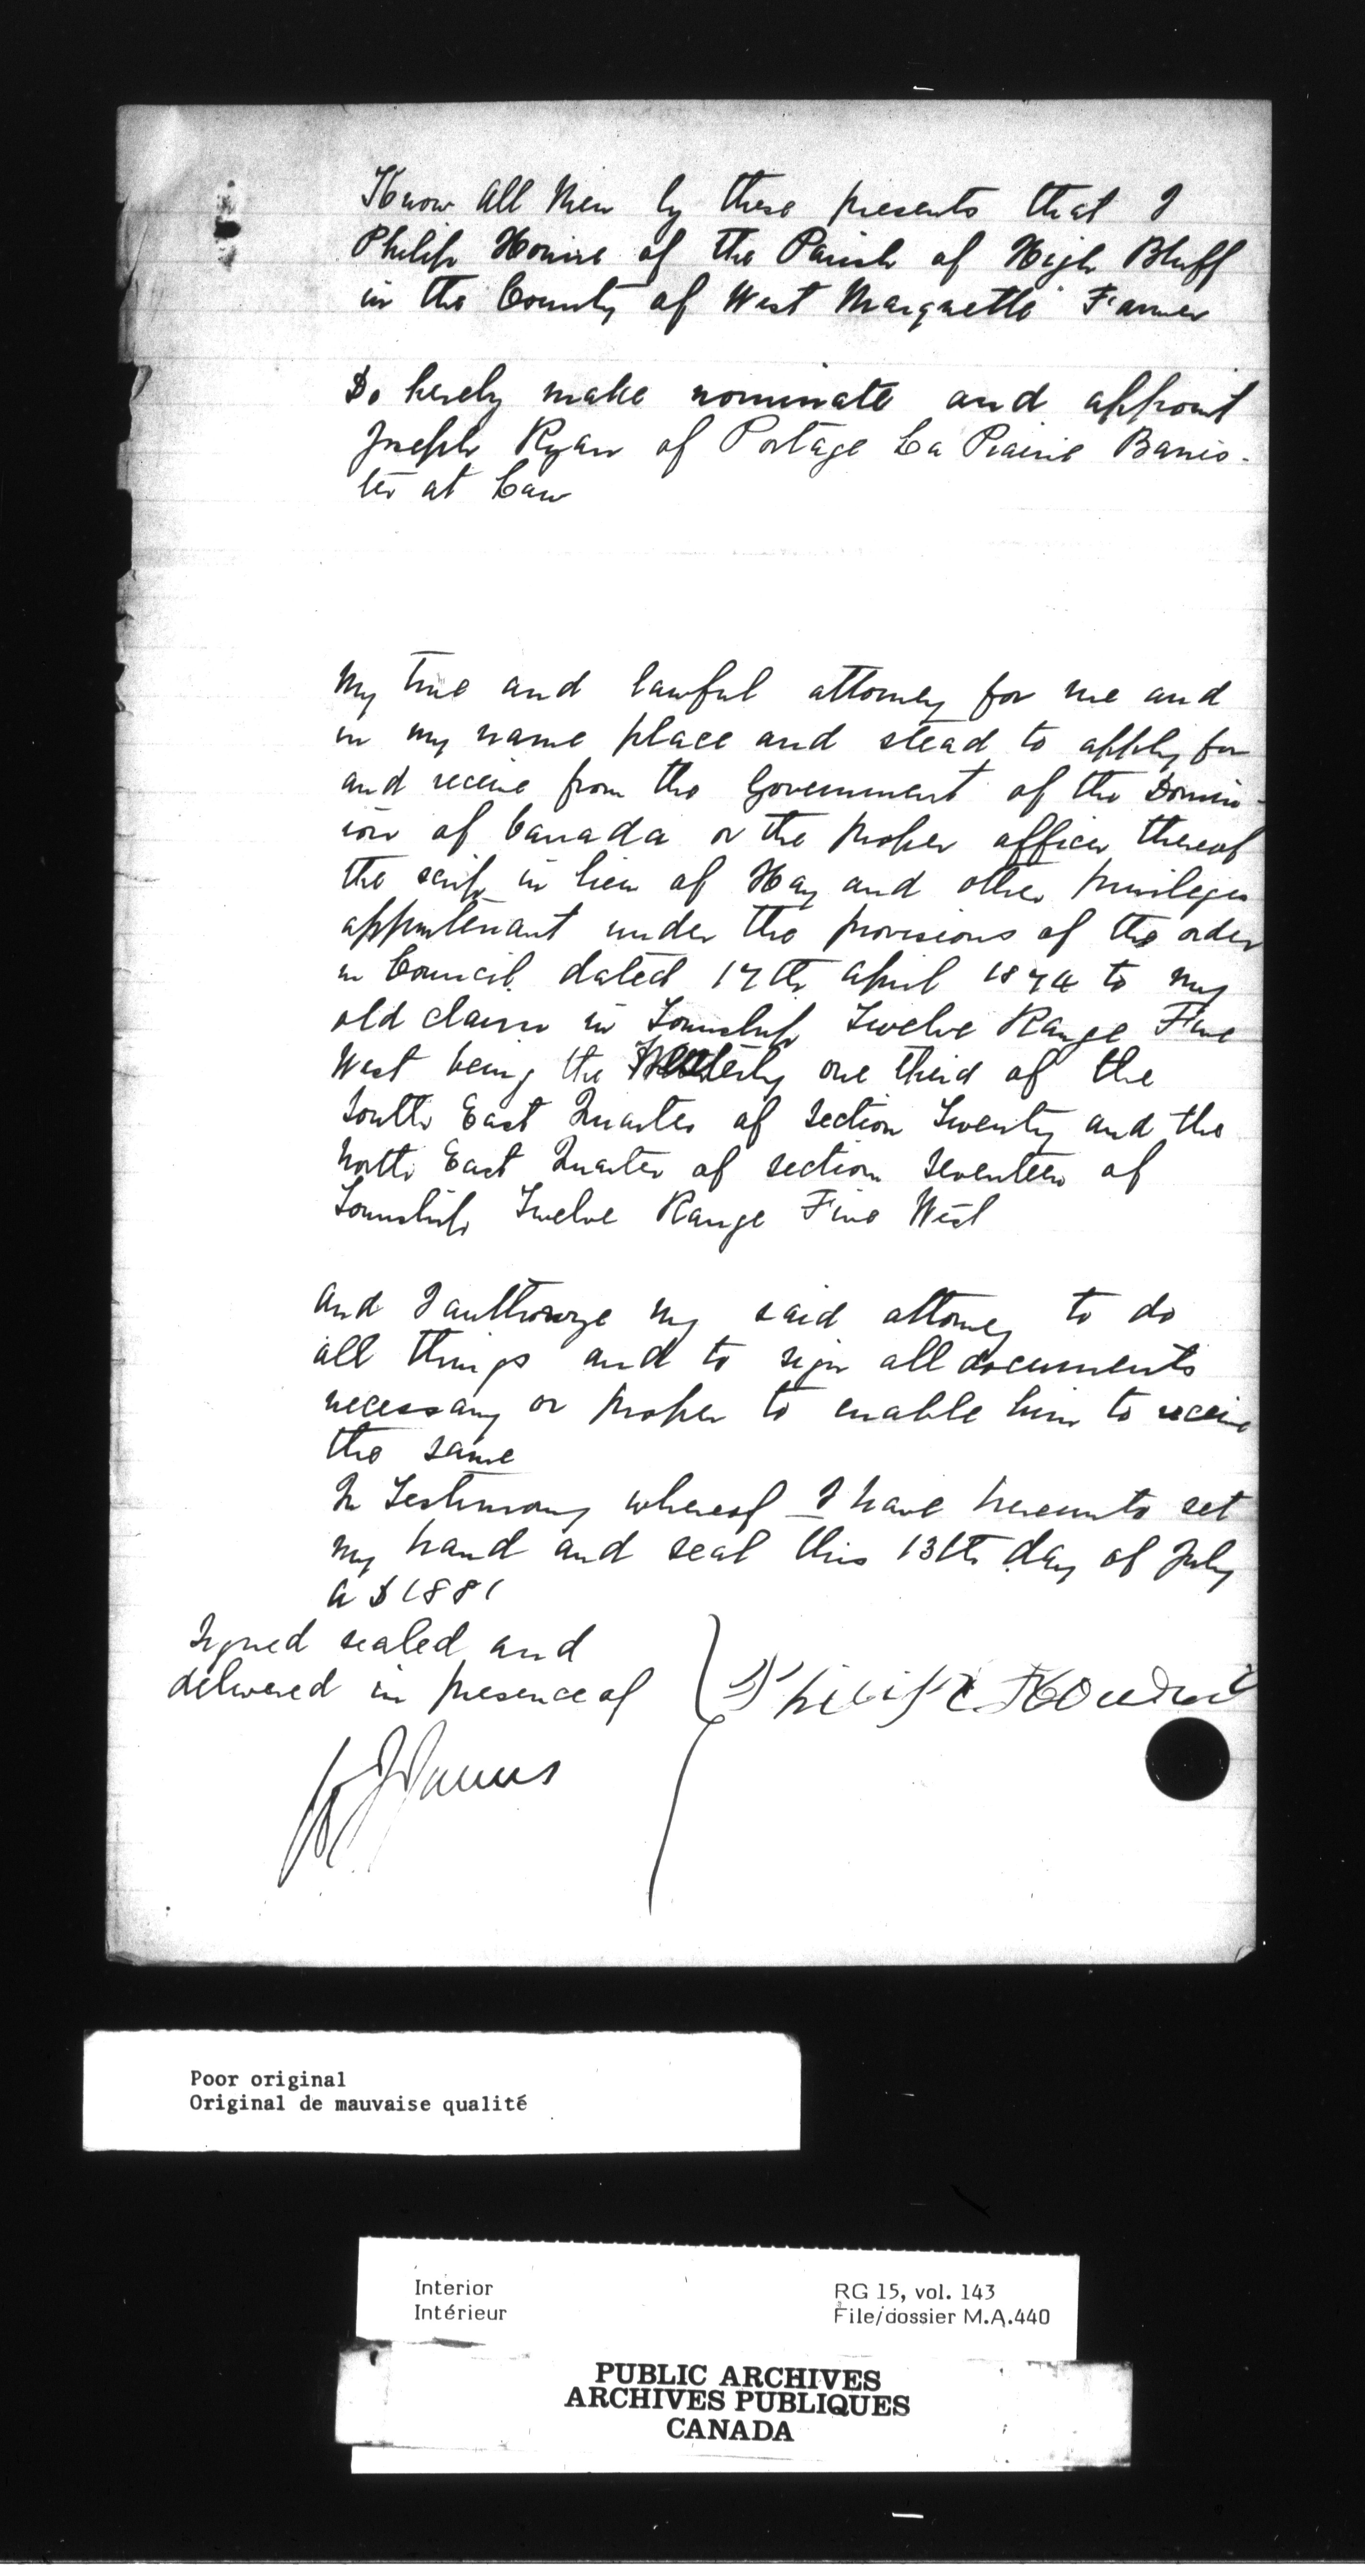 Know all Men by these presents that I
Philip Hourie of the Parish of High Bluff
in the County of West Marquette Farmer
Do hereby make nominate and appoint
Joseph Ryan of Portage La Prairie Barris-
ter at Law
My true and lawful attorney for me and
in my name place and stead to apply for
and receive from the Government of the Domin-
ion of Canada or the proper officer thereof
the scrip in lieu of Hay and other privileges
appurtenant under the provisions of the order
in Council dated 17th April 1874 to my
old claim in Township Twelve Range Five
West being the one third of the
South East Quarter of section Twenty and the
North East Quarter of section seventeen of
Township Twelve Range Five West
and I authorize my said attorney to do
all things and to sign all documents
necessary or proper to enable him to receive
the same
In Testimony whereof I have hereunto set
my hand and seal this 13th day of July
A D 1881
Signed sealed and
delivered in presence of
Philip Hourie
Poor original
Original de mauvaise qualité
Interior
Intérieur
RG 15, vol. 143
File/dossier M.A.440
PUBLIC ARCHIVES
ARCHIVES PUBLIQUES
CANADA